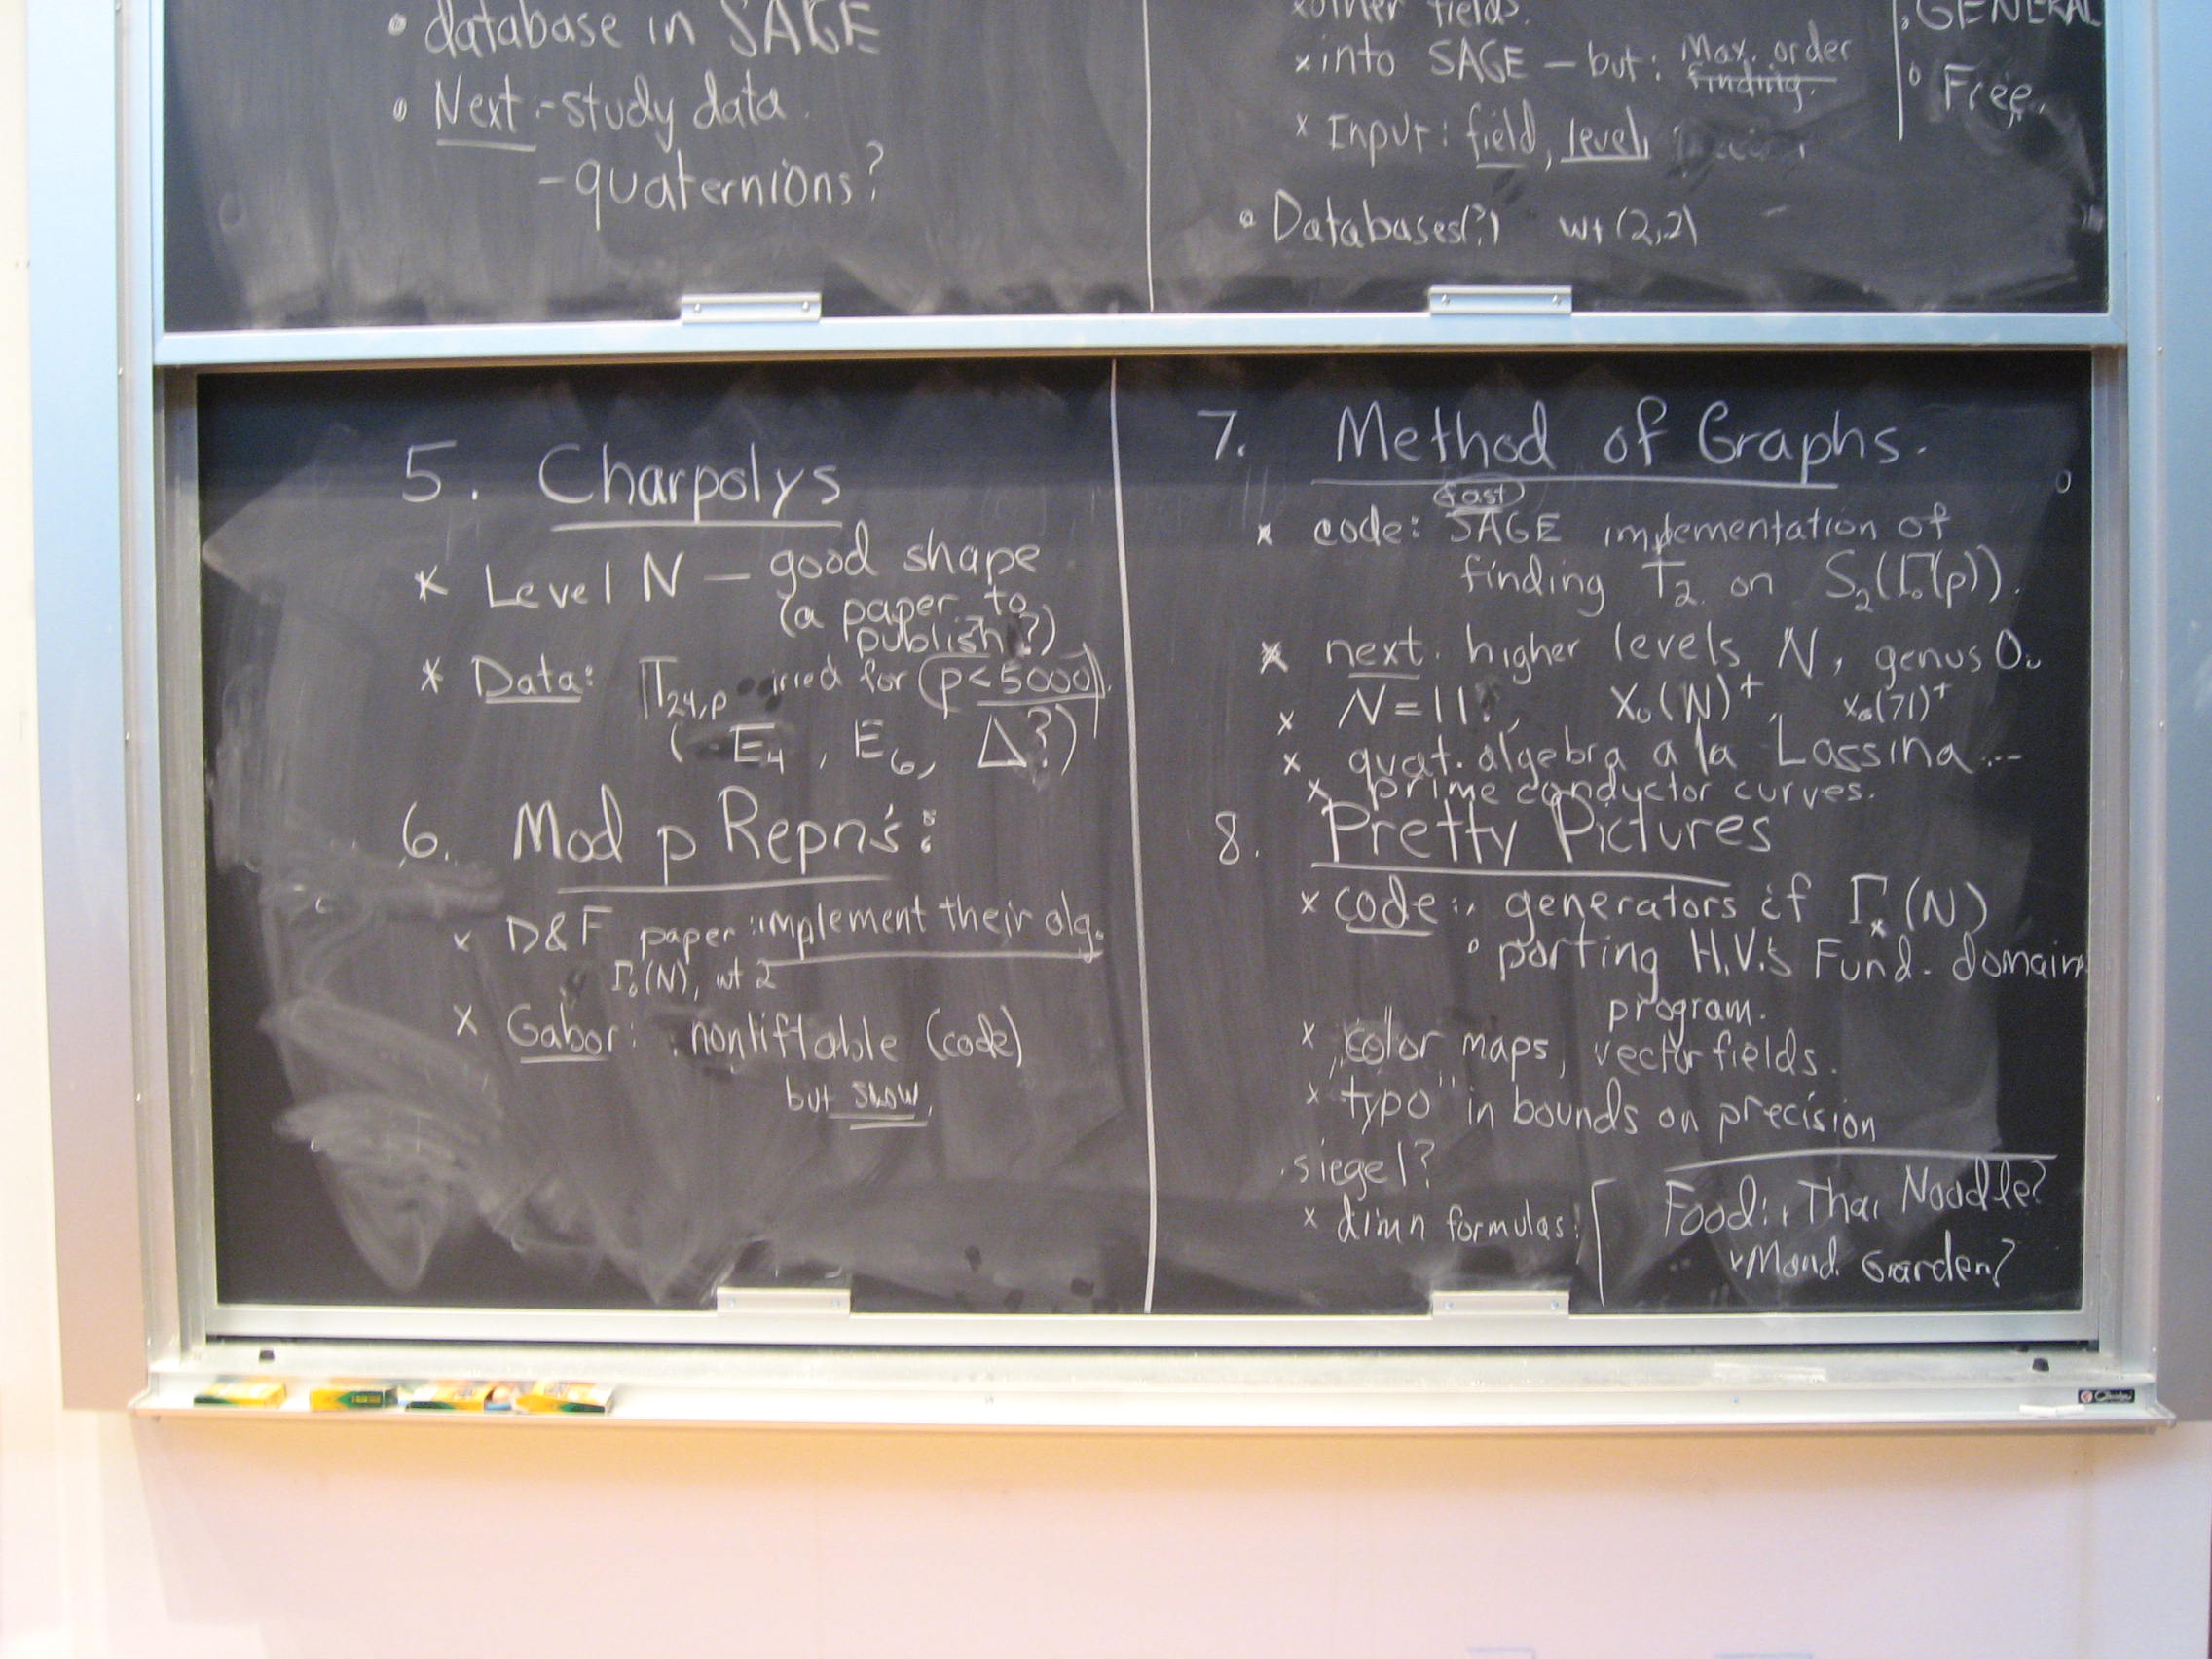 • database in SAGE
• Next:-study data.
-quaternions?
x other fields.
x into SAGE - but: Max. order
finding.
x Input: field, level,
• Databases(?) wt (2,2)
• GENERAL
• Free.
5. Charpolys
* Level N — good shape
(a paper to
publish?)
* Data: T₂₄,ₚ irred for (p<5000)
( E₄, E₆, Δ?)
6. Mod p Repn's:
x D&F paper: implement their alg.
Γ₀(N), wt 2
x Gabor: nonliftable (code)
but slow,
7. Method of Graphs.
fast
* code: SAGE implementation of
finding T₂ on S₂(Γ₀(p)).
* next: higher levels N, genus 0.
x N=11?, X₀(N)⁺, X₀(71)⁺
x quat. algebra a la Lassina...
x prime conductor curves.
8. Pretty Pictures
x code: • generators if Γ*(N)
• porting H.V.'s Fund. domain
program.
x color maps, vector fields.
x "typo" in bounds on precision
• siegel?
x dimn formulas!
Food: • Thai Noodle?
• Mand. Garden?